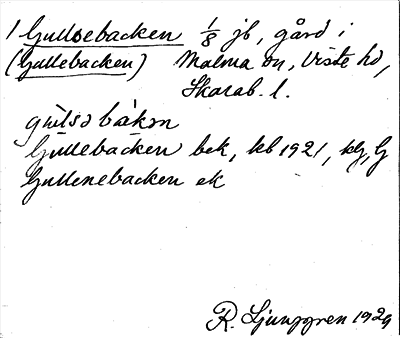 1 Gullsebacken 1/8 jb, gård i
(Gullebacken) Malma sn, Viste hd,
Skarab. l.
gúlsə bàkən
Gullebacken bek, kb 1921, kg, G
Gullenebacken ek
R. Ljunggren 1929